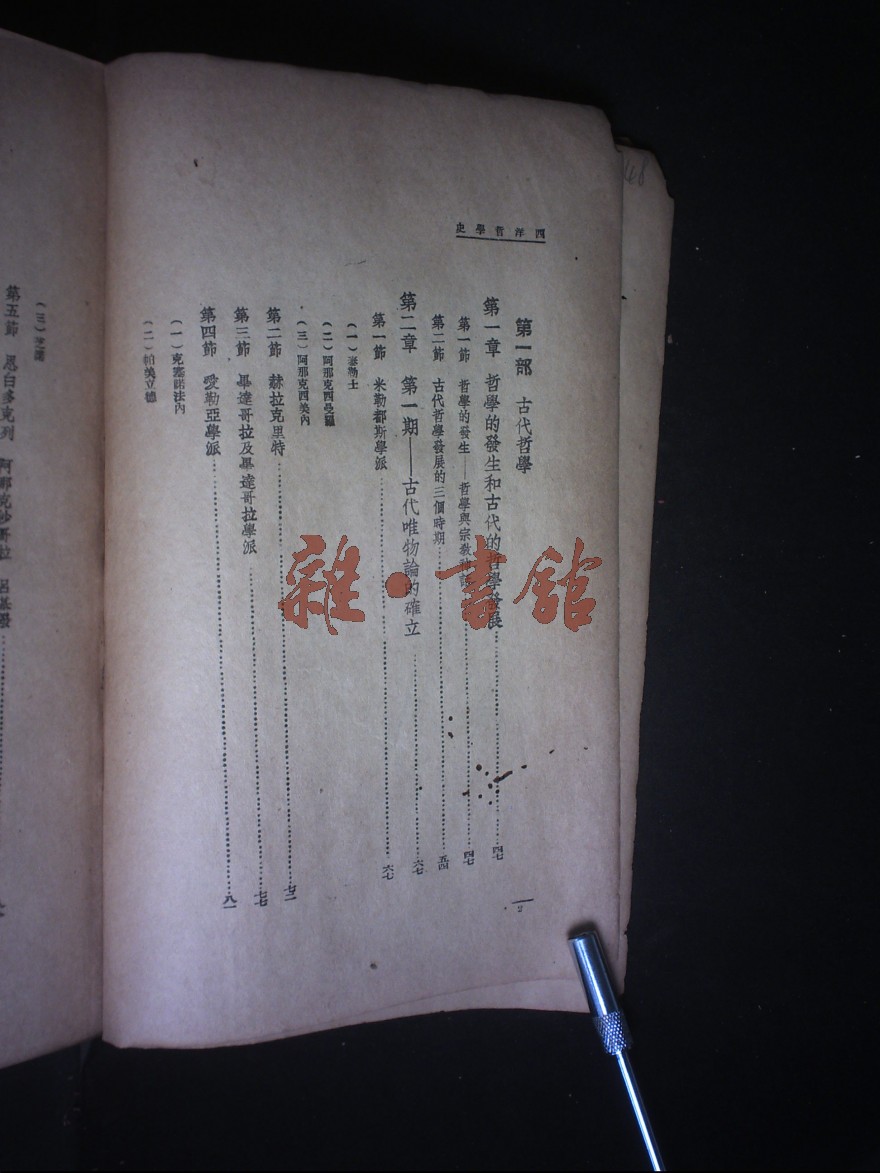 西洋哲學史
第一部 古代哲學
第一章 哲學的發生和古代的哲學發展……四七
第一節 哲學的發生——哲學與宗教神話……四七
第二節 古代哲學發展的三個時期……五四
第二章 第一期——古代唯物論的確立……六七
第一節 米勒都斯學派……六七
(一)泰勒士
(二)阿那克四曼羅
(三)阿那克四美內
第二節 赫拉克里特……七二
第三節 畢達哥拉及畢達哥拉學派……七七
第四節 愛勒亞學派……八一
(一)克塞諾法內
(二)帕美立德
2
(三)芝諾
第五節 恩白多克列 阿那克沙哥拉
雜·書館
48